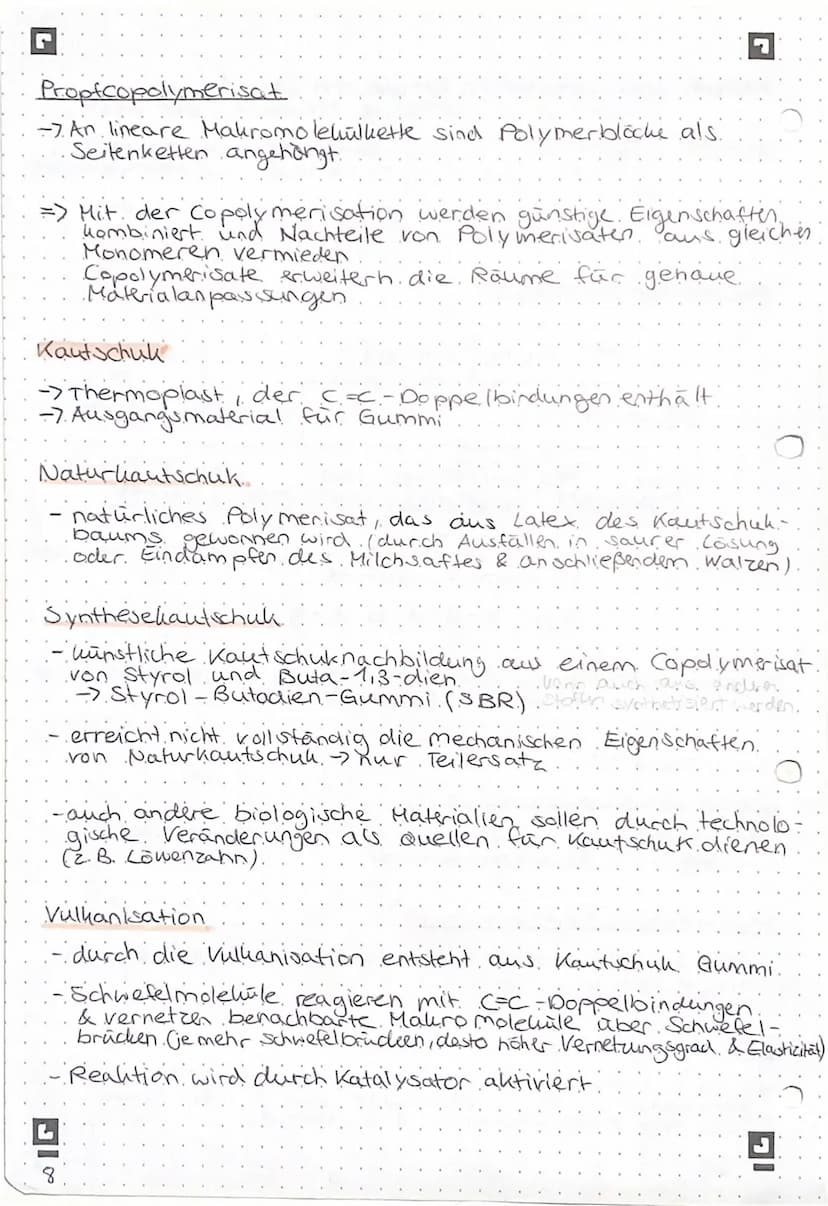 Propfcopolymerisat
-> An lineare Makromolekülkette sind Polymerblöcke als
Seitenketten angehängt
=> Mit der Copolymerisation werden günstige Eigenschaften
kombiniert und Nachteile von Polymerisaten aus gleichen
Monomeren vermieden
Copolymerisate erweitern die Räume für genaue
Materialanpassungen
Kautschuk
-> Thermoplast, der C=C-Doppelbindungen enthält
-> Ausgangsmaterial für Gummi
Naturkautschuk
- natürliches Polymerisat, das aus Latex des Kautschuk-
baums gewonnen wird (durch Ausfällen in saurer Lösung
oder Eindampfen des Milchsaftes & anschließendem Walzen)
Synthesekautschuk
- künstliche Kautschuknachbildung aus einem Copolymerisat
von Styrol und Buta-1,3-dien
kann auch aus andren
-> Styrol-Butadien-Gummi (SBR)
werden.
- erreicht nicht vollständig die mechanischen Eigenschaften
von Naturkautschuk -> nur Teilersatz
- auch andere biologische Materialien sollen durch technolo-
gische Veränderungen als Quellen für Kautschuk dienen
(z.B. Löwenzahn)
Vulkanisation
- durch die Vulkanisation entsteht aus Kautschuk Gummi
- Schwefelmoleküle reagieren mit C=C-Doppelbindungen
& vernetzen benachbarte Makromoleküle über Schwefel-
brücken (je mehr Schwefelbrücken, desto höher Vernetzungsgrad & Elastizität)
- Reaktion wird durch Katalysator aktiviert
8